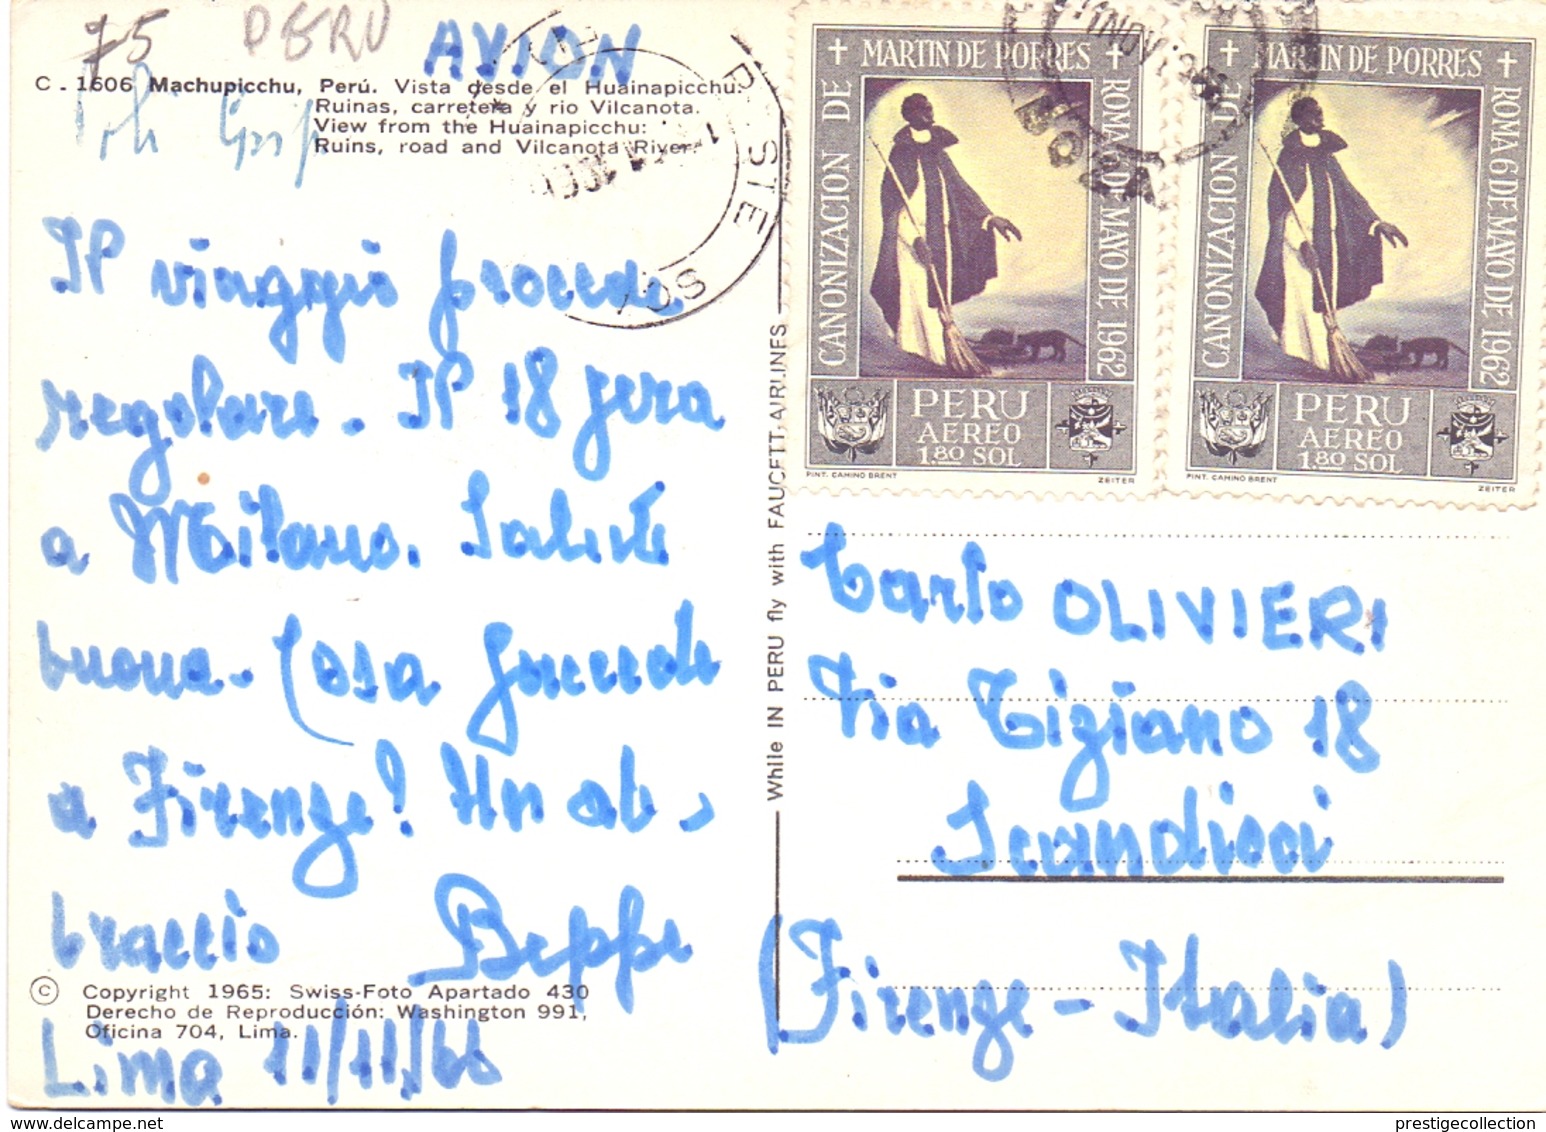 75 PERU AVION
C. 1606 Machupicchu, Perú. Vista desde el Huainapicchu:
Ruinas, carretera y rio Vilcanota.
View from the Huainapicchu:
Ruins, road and Vilcanota River.
Il viaggio procede
regolare. Il 18 sera
a Milano. Salute
buona. Cosa succede
a Firenze! Un ab-
braccio Beppe
© Copyright 1965: Swiss-Foto Apartado 430
Derecho de Reproducción: Washington 991,
Oficina 704, Lima.
Lima 11/11/66
While IN PERU fly with FAUCETT AIRLINES
CANONIZACION DE
MARTIN DE PORRES
ROMA 6 DE MAYO DE 1962
PERU
AEREO
1.80 SOL
PINT. CAMINO BRENT ZEITER
CANONIZACION DE
MARTIN DE PORRES
ROMA 6 DE MAYO DE 1962
PERU
AEREO
1.80 SOL
PINT. CAMINO BRENT ZEITER
11 NOV
Carlo OLIVIERI
Via Tiziano 18
Scandicci
(Firenze - Italia)
prestigecollection